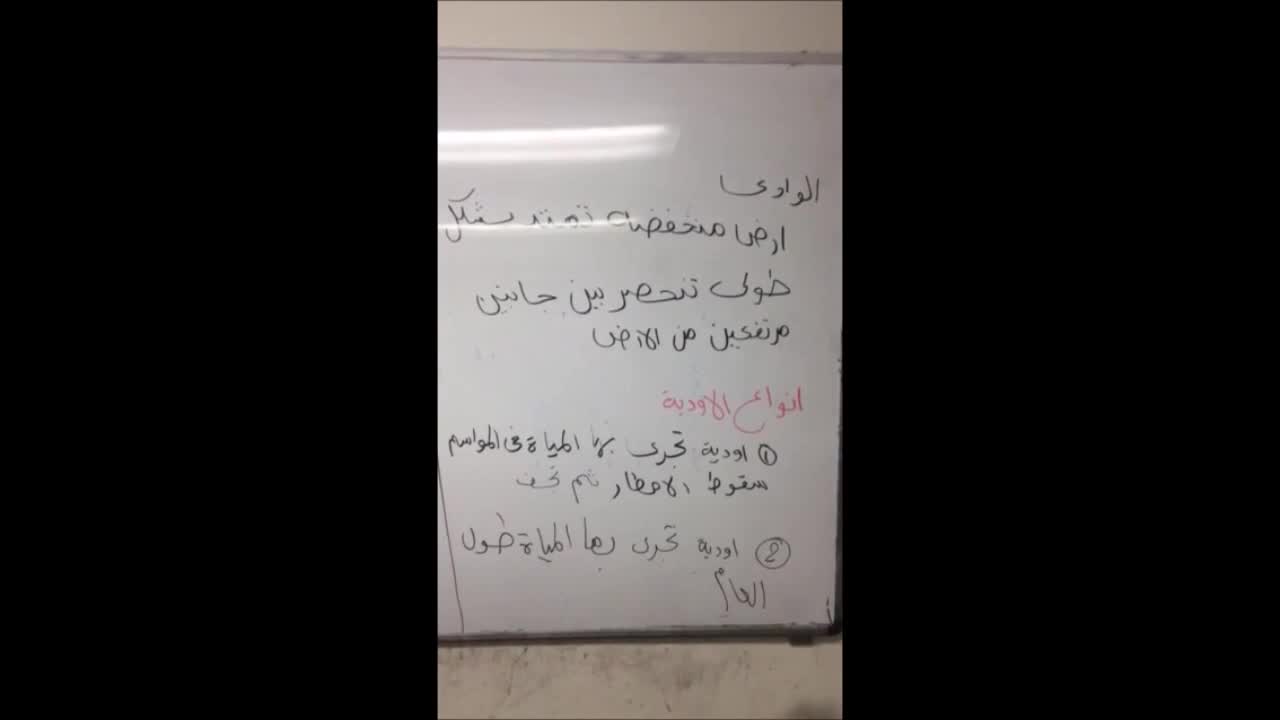 الوادى
ارض منخفضة تمتد بشكل
طولى تنحصر بين جانبين
مرتفعين من الارض
انواع الاودية
① اودية تجرى بها المياة فى المواسم
سقوط الامطار ثم تجف
② اودية تجرى بها المياة طول
العام